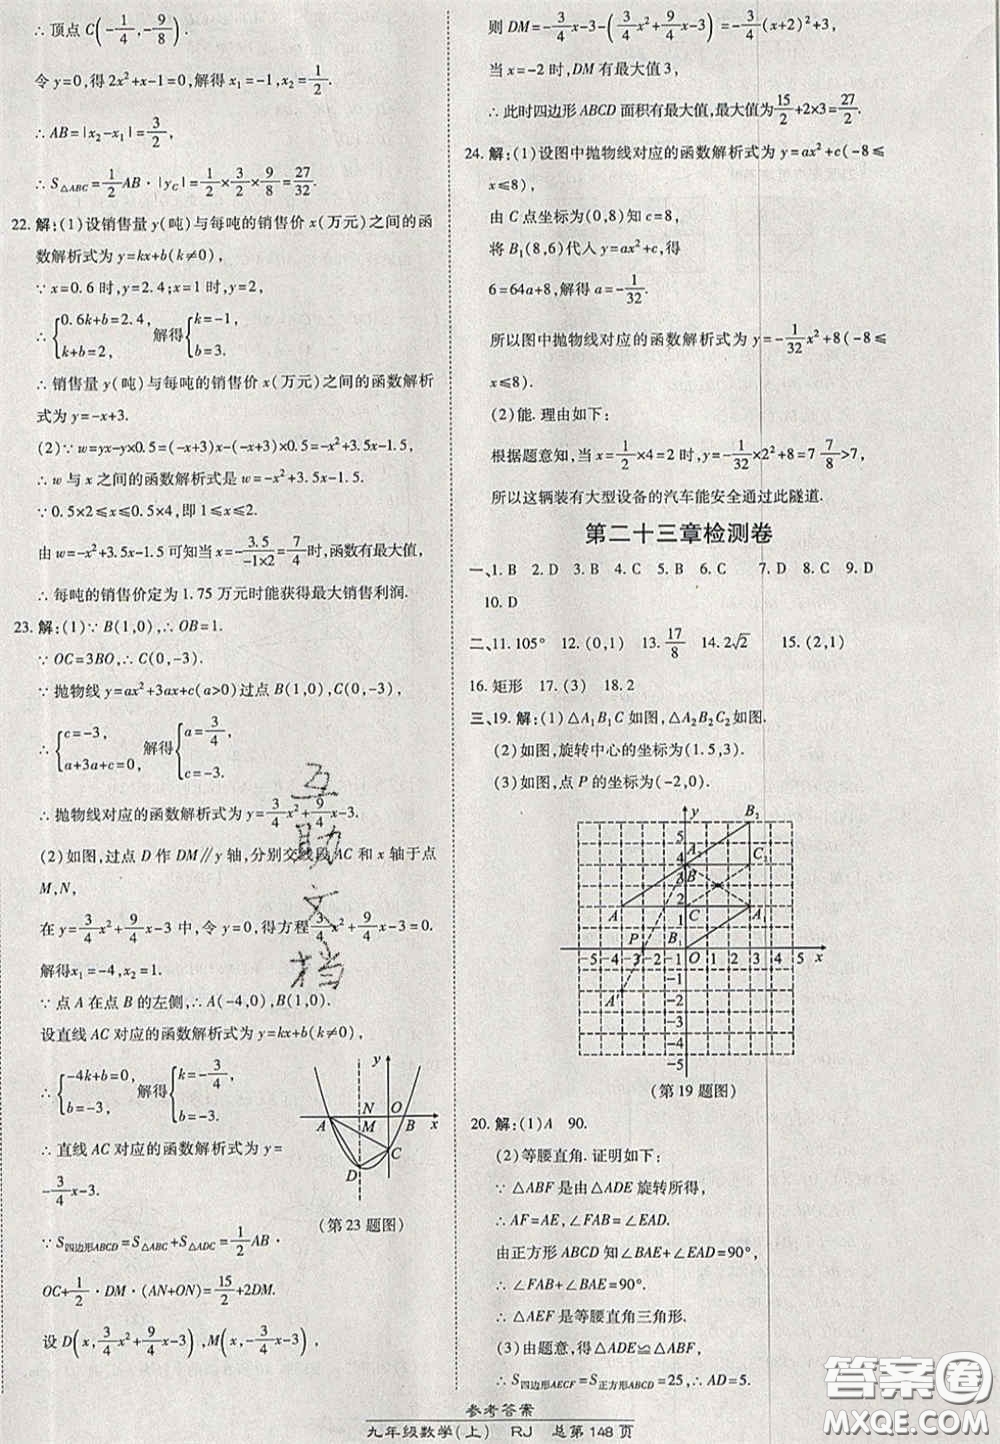 ∴ 顶点 C(-1/4, -9/8).
令 y=0,得 2x²+x-1=0,解得 x₁=-1,x₂=1/2.
∴ AB=|x₂-x₁|=3/2,
∴ S△ABC=1/2AB·|y_C|=1/2×3/2×9/8=27/32.
22. 解:(1)设销售量 y(吨)与每吨的销售价 x(万元)之间的函
数解析式为 y=kx+b(k≠0),
∵ x=0.6 时,y=2.4;x=1 时,y=2,
∴ {0.6k+b=2.4, k+b=2, 解得 {k=-1, b=3.
∴ 销售量 y(吨)与每吨的销售价 x(万元)之间的函数解析
式为 y=-x+3.
(2)∵ w=yx-y×0.5=(-x+3)x-(-x+3)×0.5=-x²+3.5x-1.5,
∴ w 与 x 之间的函数解析式是 w=-x²+3.5x-1.5.
∵ 0.5×2≤x≤0.5×4,即 1≤x≤2,
由 w=-x²+3.5x-1.5 可知当 x=-3.5/(-1×2)=7/4时,函数有最大值,
∴ 每吨的销售价定为 1.75 万元时能获得最大销售利润.
23. 解:(1)∵ B(1,0),∴ OB=1.
∵ OC=3BO,∴ C(0,-3).
∵ 抛物线 y=ax²+3ax+c(a>0)过点 B(1,0),C(0,-3),
∴ {c=-3, a+3a+c=0, 解得 {a=3/4, c=-3.
∴ 抛物线对应的函数解析式为 y=3/4x²+9/4x-3.
(2)如图,过点 D 作 DM∥y 轴,分别交线段 AC 和 x 轴于点
M,N,
在 y=3/4x²+9/4x-3 中,令 y=0,得方程3/4x²+9/4x-3=0.
解得x₁=-4,x₂=1.
∵ 点 A 在点 B 的左侧,∴ A(-4,0),B(1,0).
设直线 AC 对应的函数解析式为 y=kx+b(k≠0),
∴ {-4k+b=0, b=-3. 解得 {k=-3/4, b=-3.
∴ 直线 AC 对应的函数解析式为 y=
-3/4x-3.
y
N O
A M B x
C
D
(第 23 题图)
∵ S四边形ABCD=S△ABC+S△ADC=1/2AB·
OC+1/2·DM·(AN+ON)=15/2+2DM.
设 D(x,3/4x²+9/4x-3),M(x,-3/4x-3),
则 DM=-3/4x-3-(3/4x²+9/4x-3)=-3/4(x+2)²+3,
当 x=-2 时,DM 有最大值 3,
∴ 此时四边形 ABCD 面积有最大值,最大值为15/2+2×3=27/2.
24. 解:(1)设图中抛物线对应的函数解析式为 y=ax²+c(-8≤
x≤8),
由 C 点坐标为(0,8)知 c=8,
将 B₁(8,6)代入 y=ax²+c,得
6=64a+8,解得 a=-1/32.
所以图中抛物线对应的函数解析式为 y=-1/32x²+8(-8≤
x≤8).
(2)能. 理由如下:
根据题意知,当 x=1/2×4=2 时,y=-1/32×2²+8=7 7/8>7,
所以这辆装有大型设备的汽车能安全通过此隧道.
第二十三章检测卷
一、1. B 2. D 3. B 4. D 5. B 6. C 7. D 8. C 9. D
10. D
二、11. 105° 12. (0,1) 13. 17/8 14. 2√2 15. (2,1)
16. 矩形 17. (3) 18. 2
三、19. 解:(1)△A₁B₁C 如图,△A₂B₂C₂如图.
(2)如图,旋转中心的坐标为(1.5,3).
(3)如图,点 P 的坐标为(-2,0).
y B₂
5
4 A₂ C₂
B
2
A 1 C A₁
P B₁
-5 -4 -3 -2 -1 O 1 2 3 4 5 x
-1
A′ -2
-3
-4
-5
(第 19 题图)
20. 解:(1)A 90.
(2)等腰直角. 证明如下:
∵ △ABF 是由△ADE 旋转所得,
∴ AF=AE,∠FAB=∠EAD.
由正方形 ABCD 知∠BAE+∠EAD=90°,
∴ ∠FAB+∠BAE=90°.
∴ △AEF 是等腰直角三角形.
(3)由题意,得△ADE≌△ABF,
∴ S四边形AECF=S正方形ABCD=25,∴ AD=5.
互助文档
答案圈
MXQE.COM
参考答案
九年级数学(上) RJ 总第 148 页